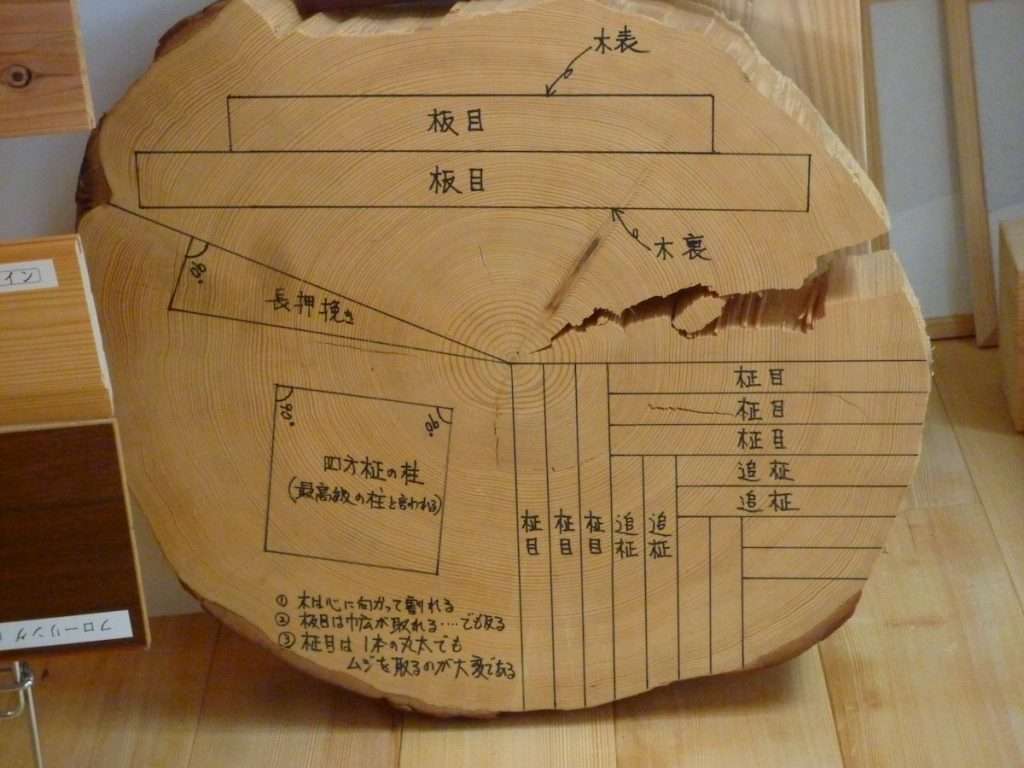 木表
板目
板目
木裏
90°
長押挽き
柾目
柾目
柾目
追柾
追柾
柾目
柾目
柾目
追柾
追柾
90°
90°
四方柾の柱
(最高級の柱と言われる)
① 木は心に向かって割れる
② 板目は巾広が取れる‥‥でも反る
③ 柾目は 1本の丸太でも
ムジを取るのが大変である
フローリング